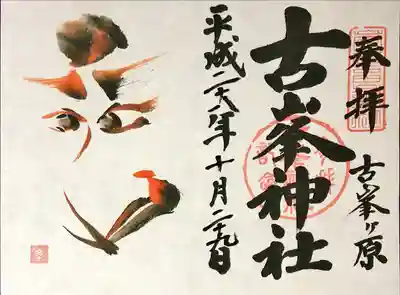 奉拝
古峯ヶ原
古峯神社
平成二十八年十月二十九日